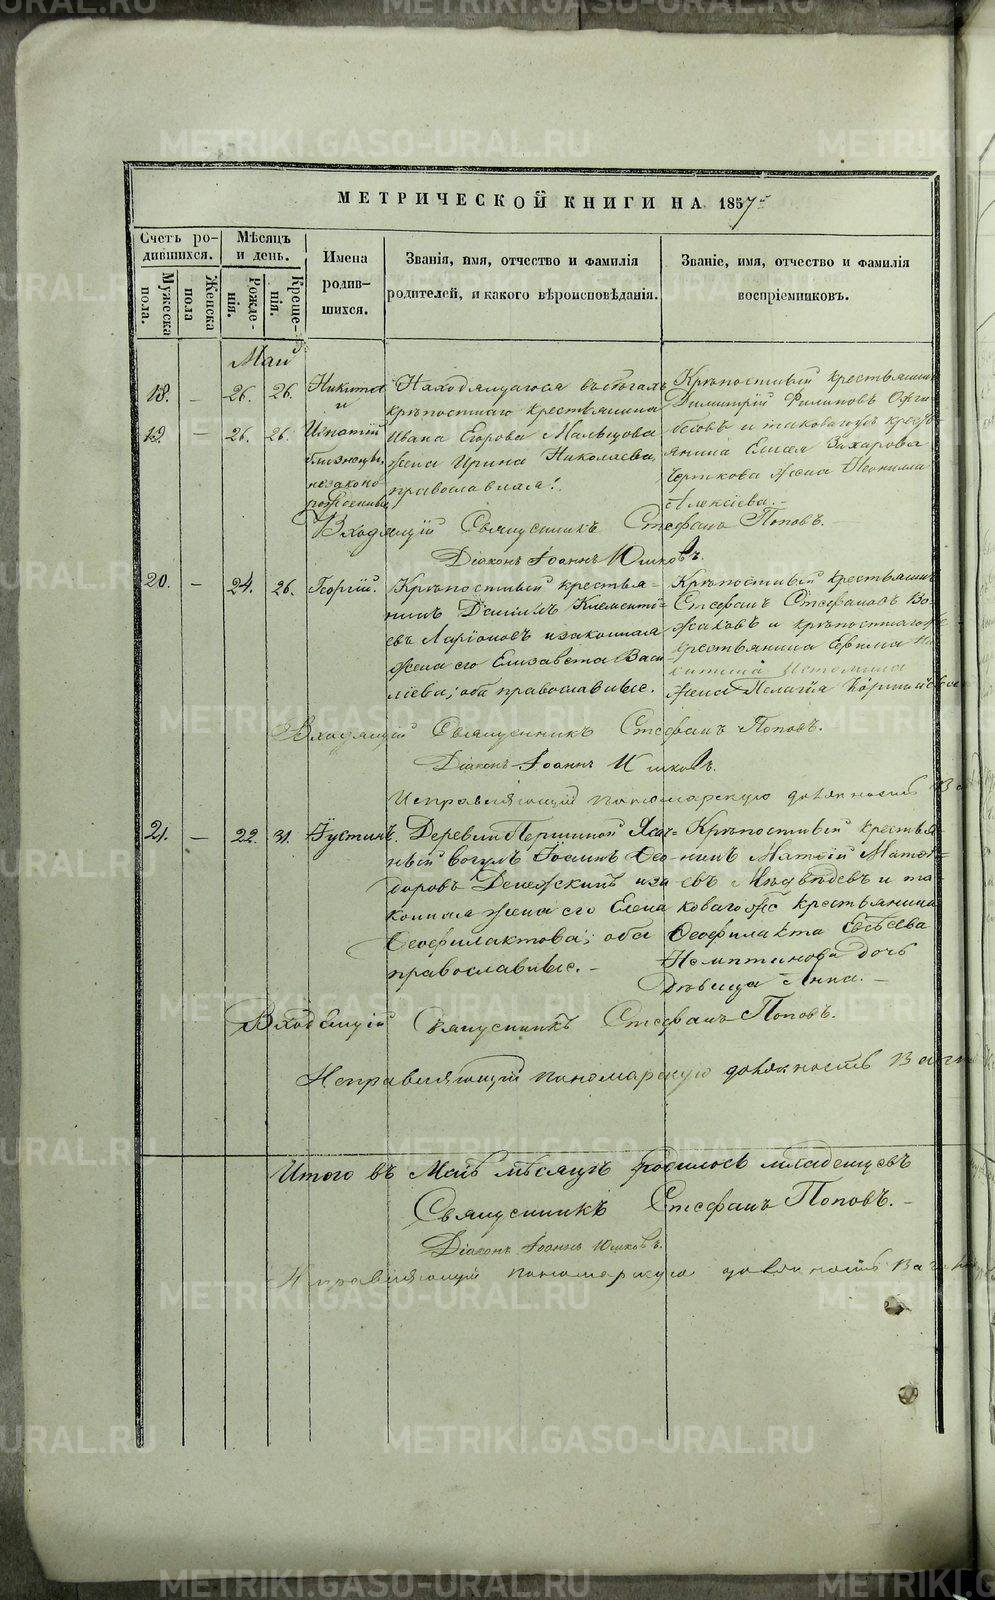 МЕТРИЧЕСКОЙ КНИГИ НА 1857й
Счетъ ро-
дившихся.
Мужеска
пола.
Женска
пола
Мѣсяцъ
и день.
Рожде-
нія.
Креще-
нія.
Имена
родив-
шихся.
Званія, имя, отчество и фамилія
родителей, и какого вѣроисповѣданія.
Званіе, имя, отчество и фамилія
воспріемниковъ.
Май
18. – 26. 26. Никита
и
19. – 26. 26. Игнатій
близнецы,
незаконо
рожденные
Находящагося въ бѣгахъ
крѣпостнаго крестьянина
Ивана Егорова Мальцова
жена Ирина Николаева,
православная.
Крѣпостный крестьянинъ
Димитрій Филиповъ
и таковагожъ крестья
янина Елисея Захарова
Черткова жена Неонилла
Алексіева.
Входящій Священникъ Стефанъ Поповъ.
Діаконъ Іоаннъ Юшковъ.
20. – 24. 26. Георгій.
Крѣпостный крестья-
нинъ Даніилъ Клементі-
евъ Ларіоновъ и законная
жена его Елизавета Васи
ліева; оба православные.
Крѣпостный крестьянинъ
Стефанъ Стефановъ Во-
жаковъ и крѣпостнаго
крестьянина Ефима Ни
китина Истомина
жена Пелагія
Входящій Священникъ Стефанъ Поповъ.
Діаконъ Іоаннъ Юшковъ.
Исправляющій пономарскую должность
21. – 22. 31. Іустинъ.
Деревни Першиной Ясач-
ный вогулъ Іоаннъ Ѳео-
доровъ Денежкинъ и за
конная жена его Елена
Ѳеофилактова; оба
православные.
Крѣпостный крестья
нинъ Матѳій Матѳі-
евъ Медвѣдевъ и та
коваго же крестьянина
Ѳеофилакта Евсѣева
дочь
Дѣвица Анна.
Входящій Священникъ Стефанъ Поповъ.
Исправляющій пономарскую должность
Итого въ Маѣ мѣсяцѣ родилось младенцевъ
Священникъ Стефанъ Поповъ.
Діаконъ Іоаннъ Юшковъ.
Исправляющій пономарскую должность
METRIKI.GASO-URAL.RU